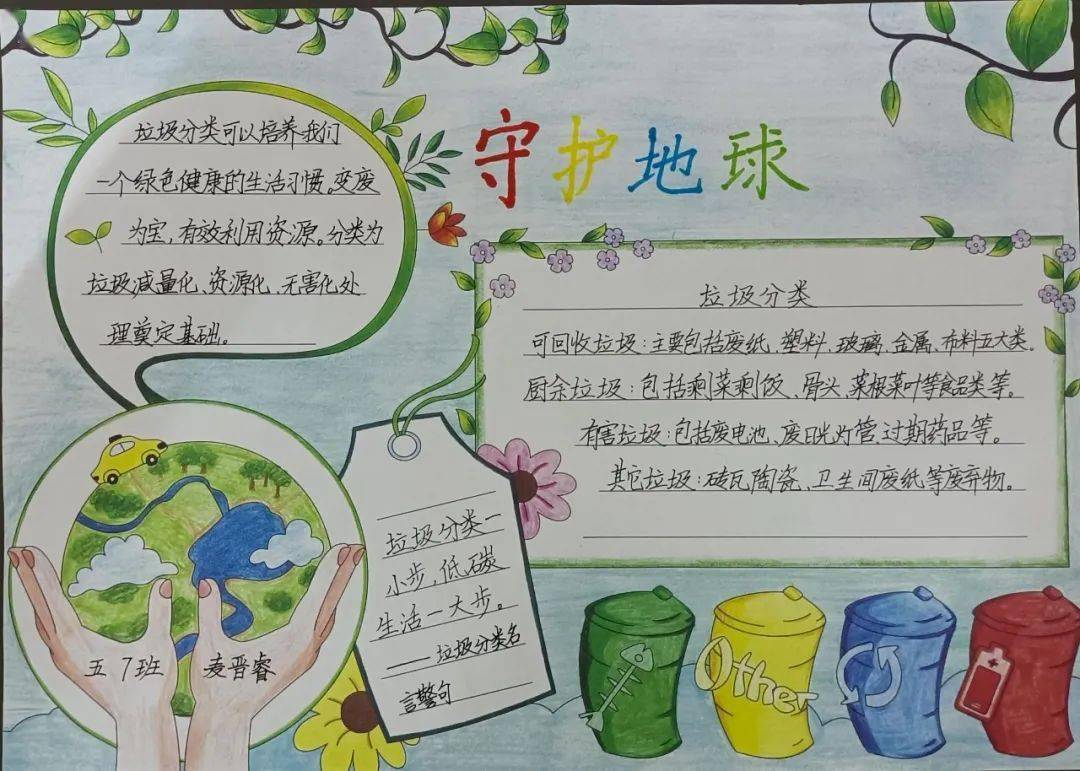 守护地球
垃圾分类可以培养我们
一个绿色健康的生活习惯。变废
为宝,有效利用资源。分类为
垃圾减量化、资源化、无害化处
理奠定基础。
垃圾分类
可回收垃圾:主要包括废纸、塑料、玻璃、金属、布料五大类。
厨余垃圾:包括剩菜剩饭、骨头、菜根菜叶等食品类等。
有害垃圾:包括废电池、废日光灯管、过期药品等。
其它垃圾:砖瓦陶瓷、卫生间废纸等废弃物。
垃圾分类一
小步,低碳
生活一大步。
——垃圾分类名
言警句
五7班 麦晋睿
Other